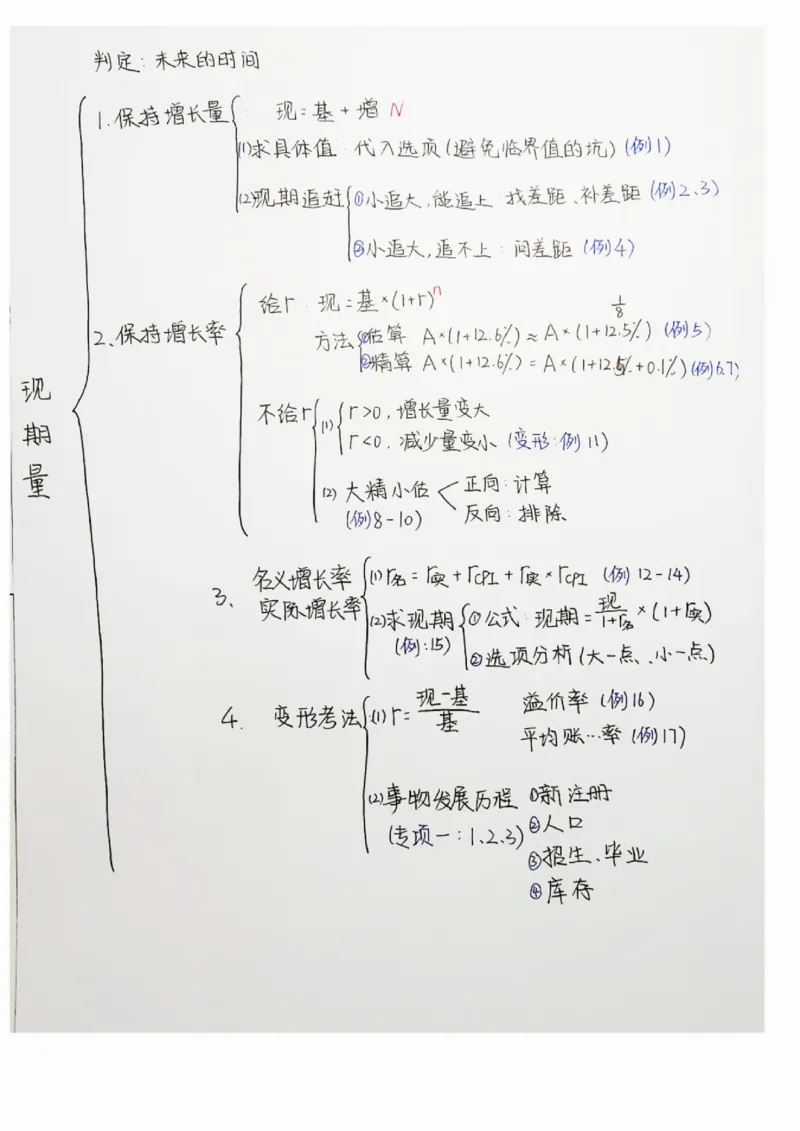 判定：未来的时间
现期量
1.保持增长量
现=基+增 N
(1)求具体值：代入选项(避免临界值的坑)(例1)
(2)现期追赶
①小追大,能追上：找差距、补差距 (例2、3)
②小追大,追不上：问差距 (例4)
2、保持增长率
给r：现=基×(1+r)^n
1/8
方法
①估算 A×(1+12.6%)≈A×(1+12.5%) (例5)
②精算 A×(1+12.6%)=A×(1+12.5%+0.1%)(例6.7)
不给r
(1)
r>0,增长量变大
r<0.减少量变小 (变形:例11)
(2) 大精小估
(例8-10)
正向：计算
反向：排除
3、
名义增长率
实际增长率
(1)r名=r实+rCPI+r实×rCPI (例12-14)
(2)求现期
(例:15)
①公式：现期=现/(1+r名)×(1+r实)
②选项分析(大一点、小一点)
4. 变形考法
(1)r=(现-基)/基
溢价率 (例16)
平均账…率 (例17)
(2)事物发展历程
(专项一：1、2、3)
①新注册
②人口
③招生、毕业
④库存